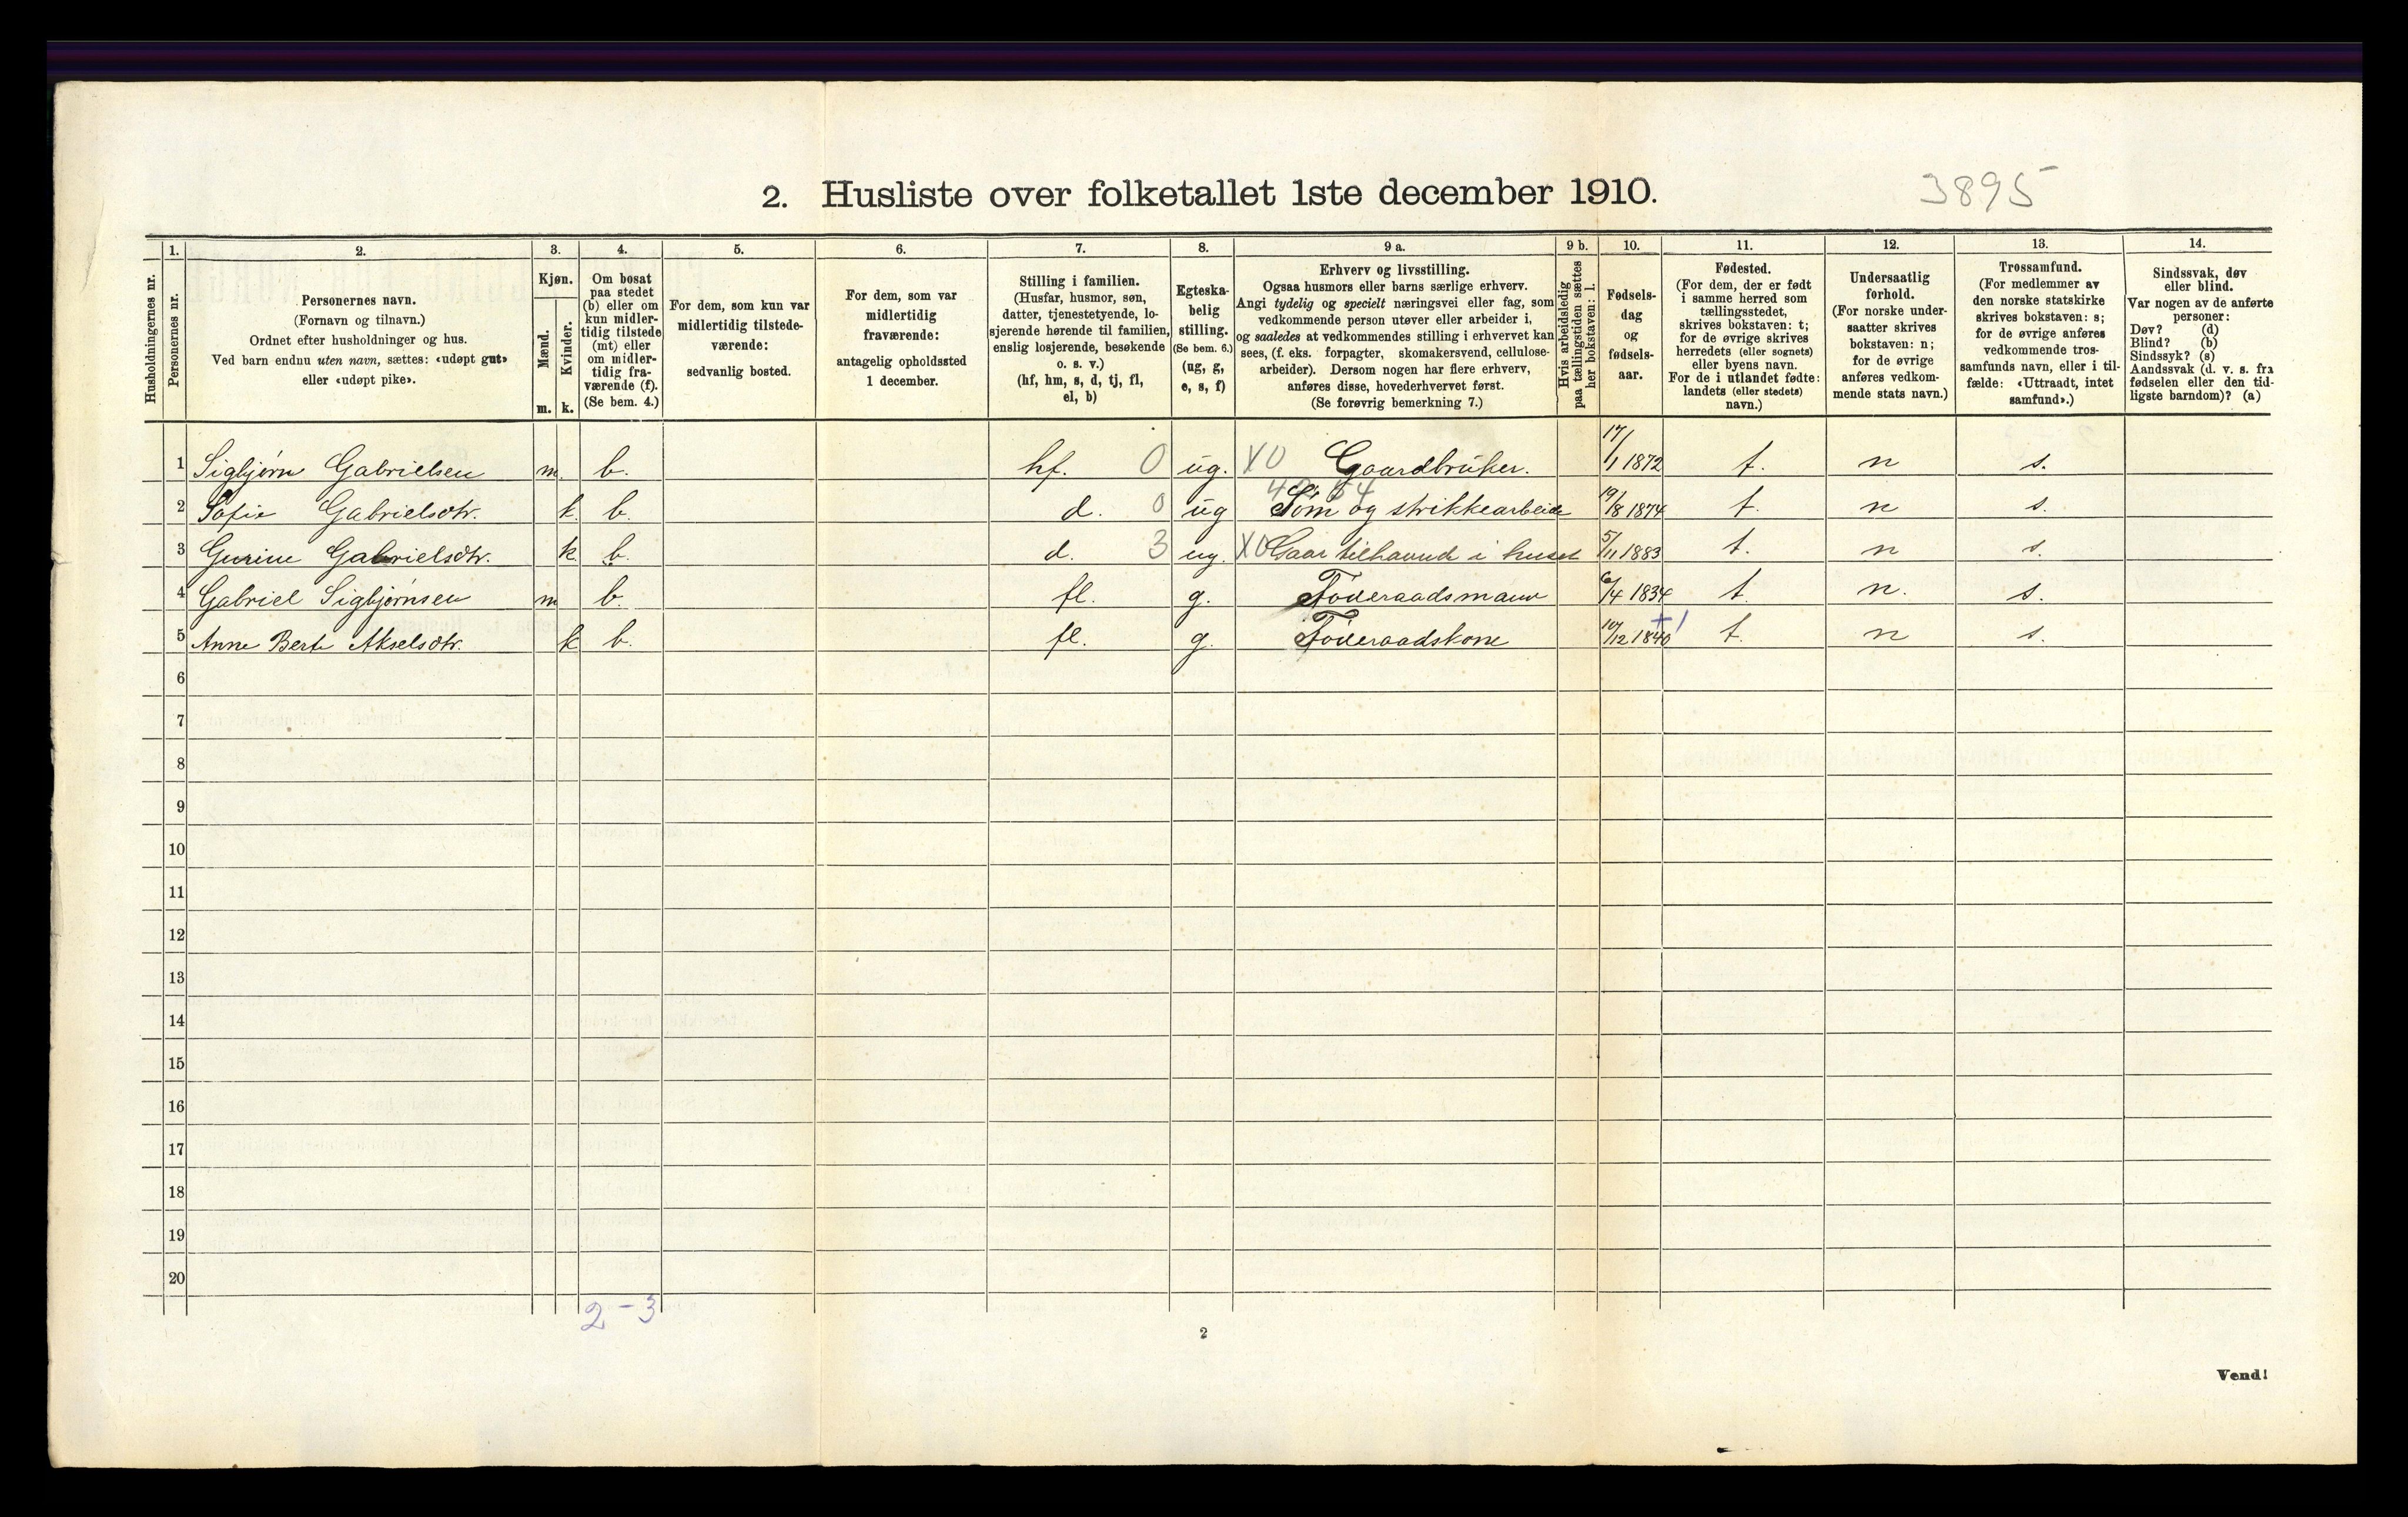 2. Husliste over folketallet 1ste december 1910.
3895
Husholdningernes nr.
1.
Personernes nr.
2.
Personernes navn.
(Fornavn og tilnavn.)
Ordnet efter husholdninger og hus.
Ved barn endnu uten navn, sættes: «udøpt gut»
eller «udøpt pike».
3.
Kjøn.
Mænd.
Kvinder.
m. k.
4.
Om bosat
paa stedet
(b) eller om
kun midler-
tidig tilstede
(mt) eller
om midler-
tidig fra-
værende (f).
(Se bem. 4.)
5.
For dem, som kun var
midlertidig tilstede-
værende:
sedvanlig bosted.
6.
For dem, som var
midlertidig
fraværende:
antagelig opholdssted
1 december.
7.
Stilling i familien.
(Husfar, husmor, søn,
datter, tjenestetyende, lo-
sjerende hørende til familien,
enslig losjerende, besøkende
o. s. v.)
(hf, hm, s, d, tj, fl,
el, b)
8.
Egteska-
belig
stilling.
(Se bem. 6.)
(ug, g,
e, s, f)
9 a.
Erhverv og livsstilling.
Ogsaa husmors eller barns særlige erhverv.
Angi tydelig og specielt næringsvei eller fag, som
vedkommende person utøver eller arbeider i,
og saaledes at vedkommendes stilling i erhvervet kan
sees, (f. eks. forpagter, skomakersvend, cellulose-
arbeider). Dersom nogen har flere erhverv,
anføres disse, hovederhvervet først.
(Se forøvrig bemerkning 7.)
9 b.
Hvis arbeidsledig
paa tællingstiden sættes
her bokstaven: l.
10.
Fødsels-
dag
og
fødsels-
aar.
11.
Fødested.
(For dem, der er født
i samme herred som
tællingsstedet,
skrives bokstaven: t;
for de øvrige skrives
herredets (eller sognets)
eller byens navn.
For de i utlandet fødte:
landets (eller stedets)
navn.)
12.
Undersaatlig
forhold.
(For norske under-
saatter skrives
bokstaven: n;
for de øvrige
anføres vedkom-
mende stats navn.)
13.
Trossamfund.
(For medlemmer av
den norske statskirke
skrives bokstaven: s;
for de øvrige anføres
vedkommende tros-
samfunds navn, eller i til-
fælde: «Uttraadt, intet
samfund».)
14.
Sindssvak, døv
eller blind.
Var nogen av de anførte
personer:
Døv? (d)
Blind? (b)
Sindssyk? (s)
Aandssvak (d. v. s. fra
fødselen eller den tid-
ligste barndom)? (a)
1 Sigbjørn Gabrielsen m. b. hf. 0 ug. X0 Gaardbruker. 17/1 1872 t. n s.
2 Sofie Gabrielsdtr. k. b. d. 0 ug Søm og strikkearbeide 19/8 1874 t. n s.
3 Gurine Gabrielsdtr. k b. d. 3 ug. X0 Gaar tilhaande i huset 5/11 1883 t. n s.
4 Gabriel Sigbjørnsen m b. fl. g. Føderaadsmann 6/4 1834 t. n. s.
5 Anne Berte Akselsdtr. k b. fl. g. Føderaadskone 10/12 1840 +1 t. n s.
6
7
8
9
10
11
12
13
14
15
16
17
18
19
20
2 - 3
2
Vend!